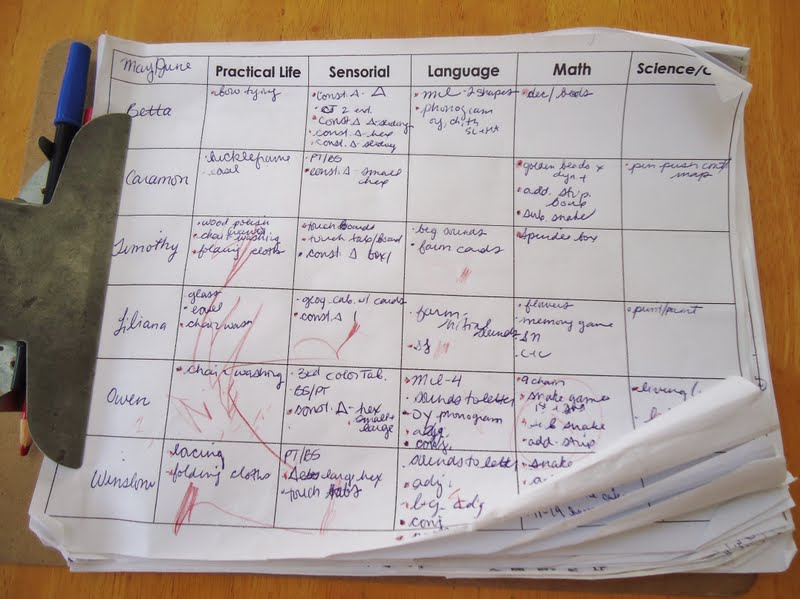 May/June Practical Life Sensorial Language Math Science/C
Betta
• bow tying
• const. Δ - Δ
const. Δ Δ sliding
• const. Δ hex
const. Δ sliding
• mil - 2 shapes
• phonogram
oy, ch, th
• dec/beads
Caramon
• buckleframe
PT/BS
• const. Δ - small
hex
• golden beads x
dyn +
• add. strip
board
• sub. snake
• pin push cont
map
Timothy
• wood polish
• chair washing
• folding cloths
• touch boards
• touch tabs/board
• const. Δ box/
• beg sounds
• farm cards
• spindle box
Liliana
glass
• easel
• chair wash
• geog. cab. w/ cards
• const Δ
• farm,
initial
sounds
• sg
• flowers
• memory game
• SN
• C+C
• print/paint
Owen
• chair washing
• 3rd color Tab.
• BS/PT
• const. Δ - hex
small +
large
• Mil - 4
• sounds to letter
• oy phonogram
• adj.
• conj.
• 9 chain
• snake games
snake
• add. strip
• living/
Winslow
• lacing
• folding cloths
PT/BS
large hex
• touch tabs
• sounds to letter
• adj.
• big adj
• conj.
• snake
• 11-19